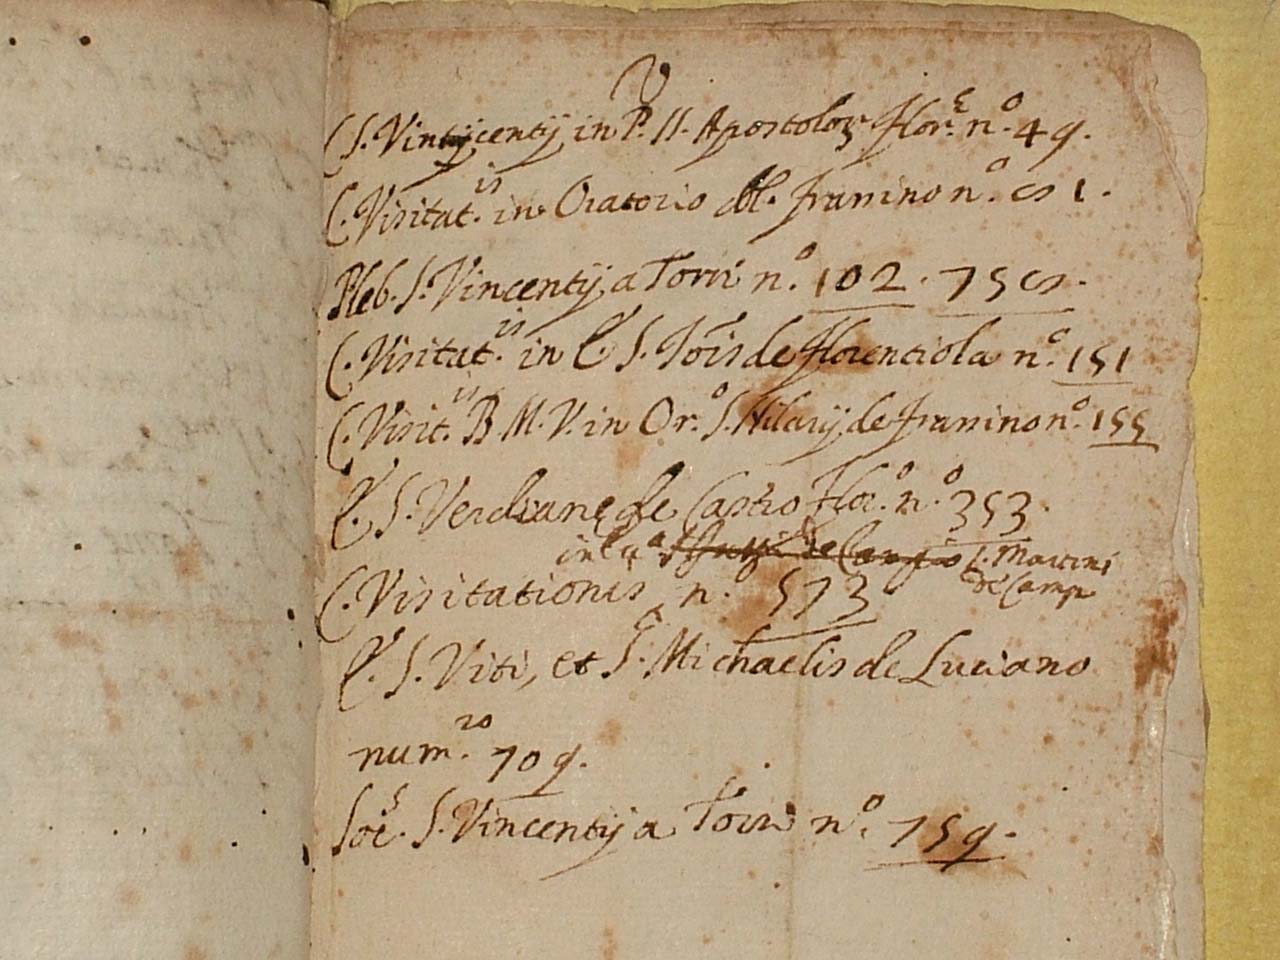 V
C. S. Vincentij in P. SS. Apostolor Flor.e n.o 49.
C. Visitat.is in Oratorio de Frassino n.o 81.
Pleb. S. Vincentij a Torri n.o 102. 758.
C. Visitat.is in E. S. Jois de Florentiola n.o 151
C. Visit.is B. M. V. in Or.o S. Hilarij de Frassino n.o 155
E. S. Verdiane de Castro Flor.o n.o 353.
in S. Martini de Camp
C. Visitationis n.o 573
E. S. Viti, et S. Michaelis de Luciano
num.ro 709.
Soc.s S. Vincentij a Torri n.o 759.